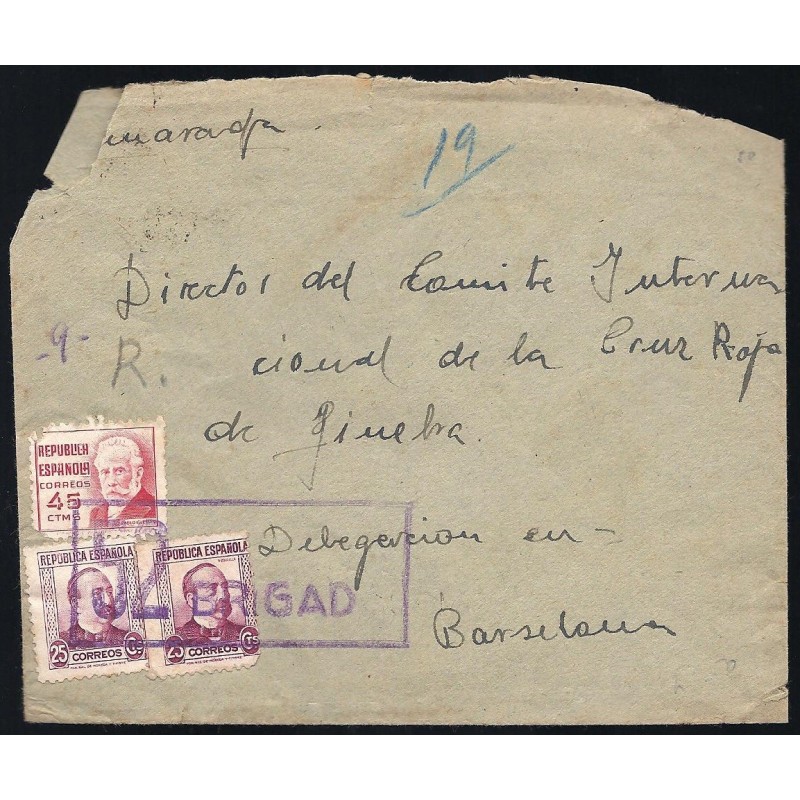 marada.
19
Director del Comite Interna
-9-
R.
cional de la Cruz Roja
de Ginebra.
REPUBLICA
ESPAÑOLA
CORREOS
45
CTMS
REPUBLICA ESPAÑOLA REPUBLICA ESPAÑOLA
Delegercion en-
BRIGAD
25 Cts 25 Cts
CORREOS CORREOS
Barselona